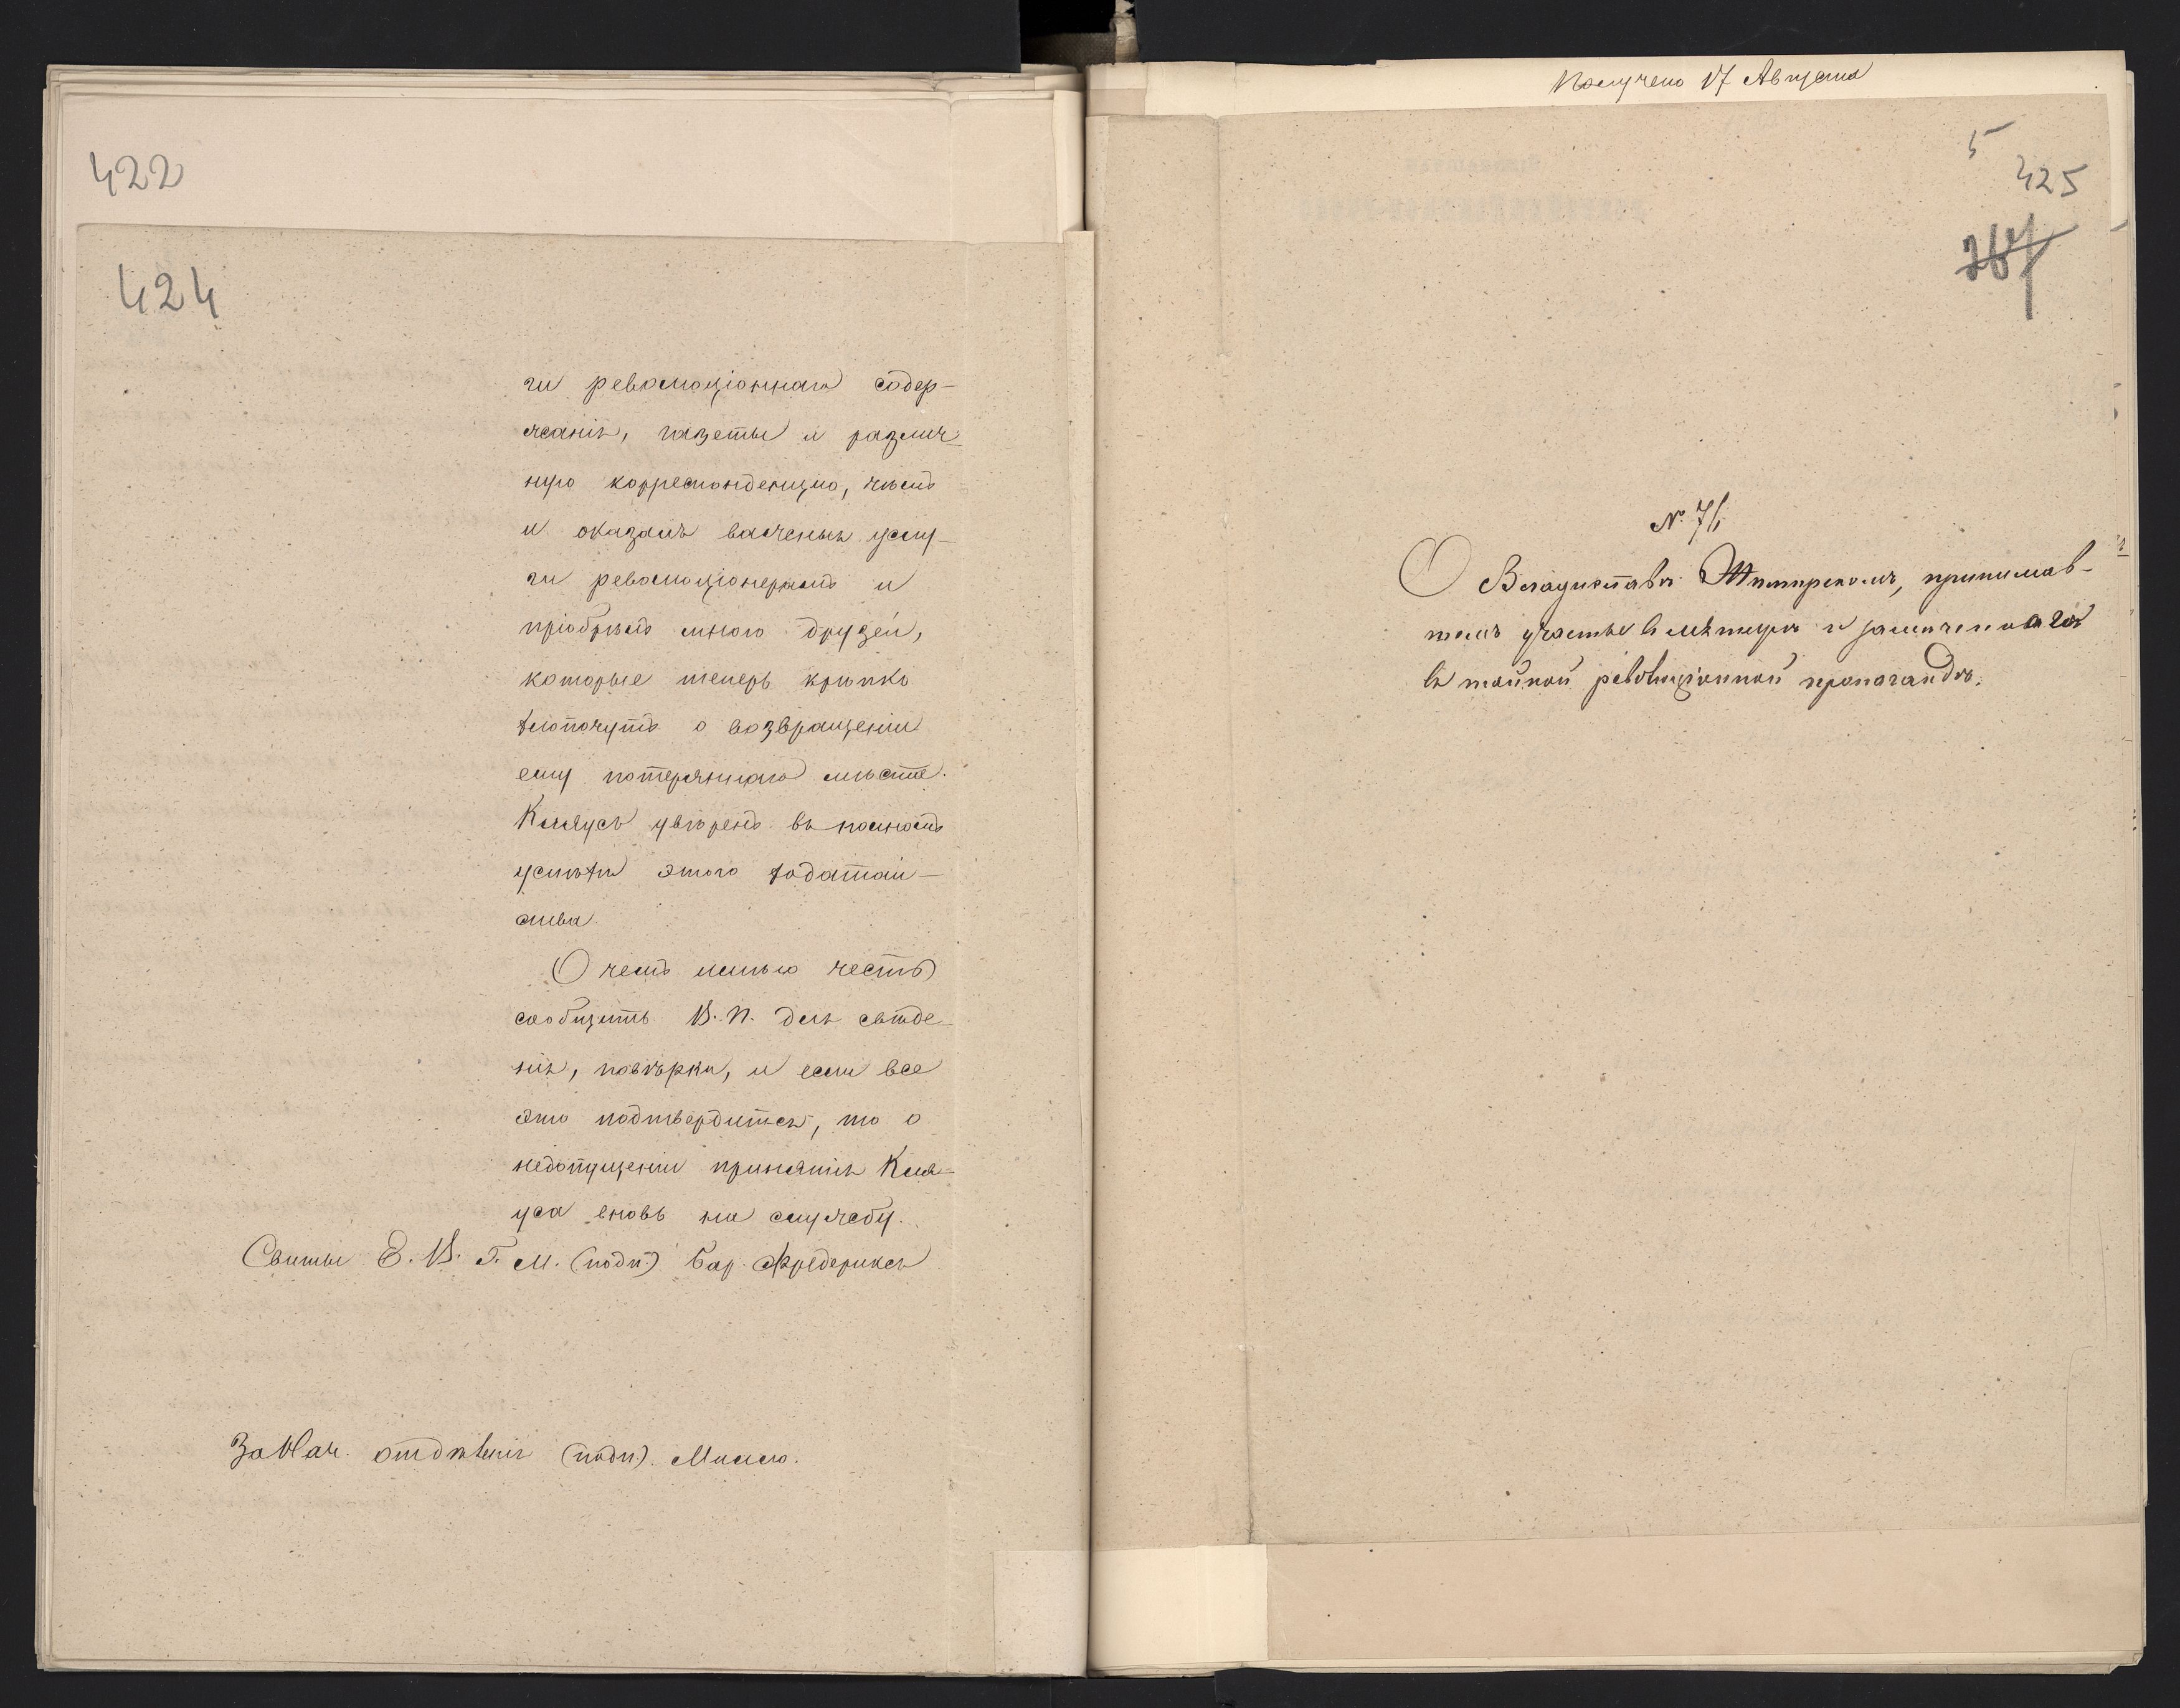 422
424
ги революціоннаго содер-
жанія, газеты и различ-
ную корреспонденцію, чѣмъ
и оказалъ важныя услу-
ги революціонерамъ и
пріобрѣлъ много друзей,
которые теперь крѣпко
хлопочутъ о возвращеніи
ему потеряннаго мѣста.
увѣренъ въ полномъ
успѣхѣ этого ходатай-
ства.
О чемъ имѣю честь
сообщить В. П. для свѣде-
нія, повѣрки, и если все
это подтвердится, то о
недопущеніи принятія Кля-
уса вновь на службу.
Свиты Е. В. Г. М. (подп.) Бар. Фредериксъ
За Нач. отдѣленія (подп.)
Получено 17 Августа
5
425
№ 71
О Владиславѣ принимав-
шемъ участіе въ мятежѣ и замѣченнаго
въ тайной революціонной пропагандѣ.